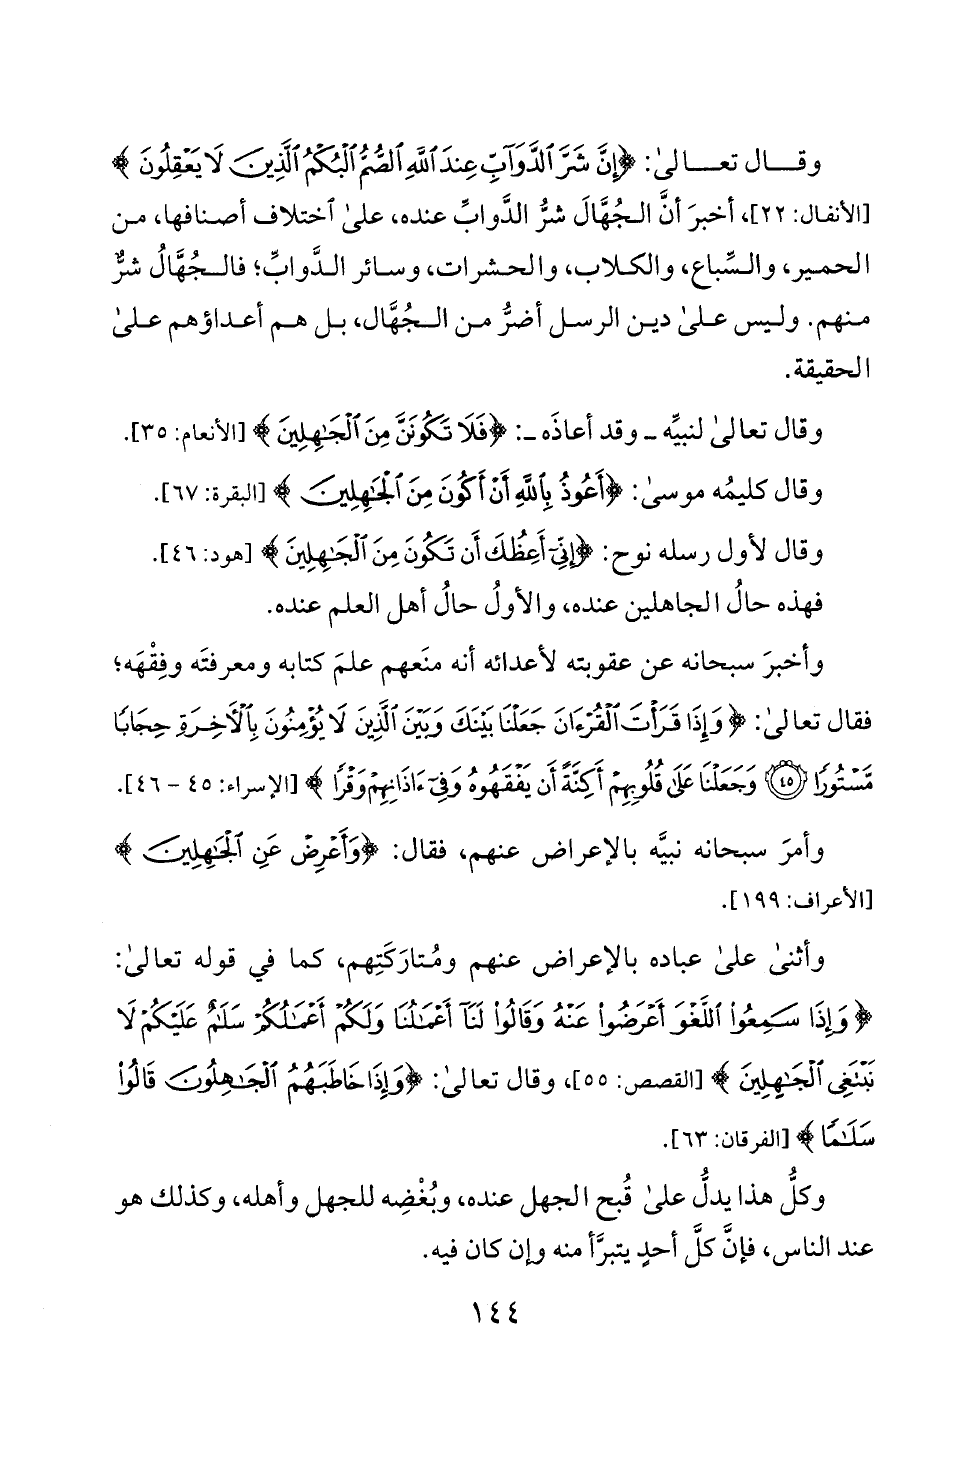 وقـــال تعـــالىٰ: ﴿إِنَّ شَرَّ ٱلدَّوَآبِّ عِندَ ٱللَّهِ ٱلصُّمُّ ٱلْبُكْمُ ٱلَّذِينَ لَا يَعْقِلُونَ﴾
[الأنفال: ٢٢]، أخبرَ أنَّ الـجُهَّالَ شرُّ الدَّوابِّ عنده، علىٰ ٱختلاف أصنافها، من
الحمير، والسِّباع، والكلاب، والحشرات، وسائر الدَّوابِّ؛ فالـجُهَّالُ شرٌّ
منهم. وليس علىٰ دين الرسل أضرُّ من الـجُهَّال، بل هم أعداؤهم علىٰ
الحقيقة.
وقال تعالىٰ لنبيِّه ـ وقد أعاذَه ـ: ﴿فَلَا تَكُونَنَّ مِنَ ٱلْجَٰهِلِينَ﴾ [الأنعام: ٣٥].
وقال كليمُه موسىٰ: ﴿أَعُوذُ بِٱللَّهِ أَنْ أَكُونَ مِنَ ٱلْجَٰهِلِينَ﴾ [البقرة: ٦٧].
وقال لأول رسله نوح: ﴿إِنِّىٓ أَعِظُكَ أَن تَكُونَ مِنَ ٱلْجَٰهِلِينَ﴾ [هود: ٤٦].
فهذه حالُ الجاهلين عنده، والأولُ حالُ أهل العلم عنده.
وأخبرَ سبحانه عن عقوبته لأعدائه أنه منَعهم علمَ كتابه ومعرفتَه وفِقْهَه؛
فقال تعالىٰ: ﴿وَإِذَا قَرَأْتَ ٱلْقُرْءَانَ جَعَلْنَا بَيْنَكَ وَبَيْنَ ٱلَّذِينَ لَا يُؤْمِنُونَ بِٱلْأَخِرَةِ حِجَابًا
مَّسْتُورًا ۝٤٥ وَجَعَلْنَا عَلَىٰ قُلُوبِهِمْ أَكِنَّةً أَن يَفْقَهُوهُ وَفِىٓ ءَاذَانِهِمْ وَقْرًا﴾ [الإسراء: ٤٥ - ٤٦].
وأمرَ سبحانه نبيَّه بالإعراض عنهم، فقال: ﴿وَأَعْرِضْ عَنِ ٱلْجَٰهِلِينَ﴾
[الأعراف: ١٩٩].
وأثنىٰ علىٰ عباده بالإعراض عنهم ومُتارَكَتِهم، كما في قوله تعالىٰ:
﴿وَإِذَا سَمِعُوا۟ ٱللَّغْوَ أَعْرَضُوا۟ عَنْهُ وَقَالُوا۟ لَنَآ أَعْمَٰلُنَا وَلَكُمْ أَعْمَٰلُكُمْ سَلَٰمٌ عَلَيْكُمْ لَا
نَبْتَغِى ٱلْجَٰهِلِينَ﴾ [القصص: ٥٥]، وقال تعالىٰ: ﴿وَإِذَا خَاطَبَهُمُ ٱلْجَٰهِلُونَ قَالُوا۟
سَلَٰمًا﴾ [الفرقان: ٦٣].
وكلُّ هذا يدلُّ علىٰ قُبح الجهل عنده، وبُغْضِه للجهل وأهله، وكذلك هو
عند الناس، فإنَّ كلَّ أحدٍ يتبرَّأ منه وإن كان فيه.
١٤٤